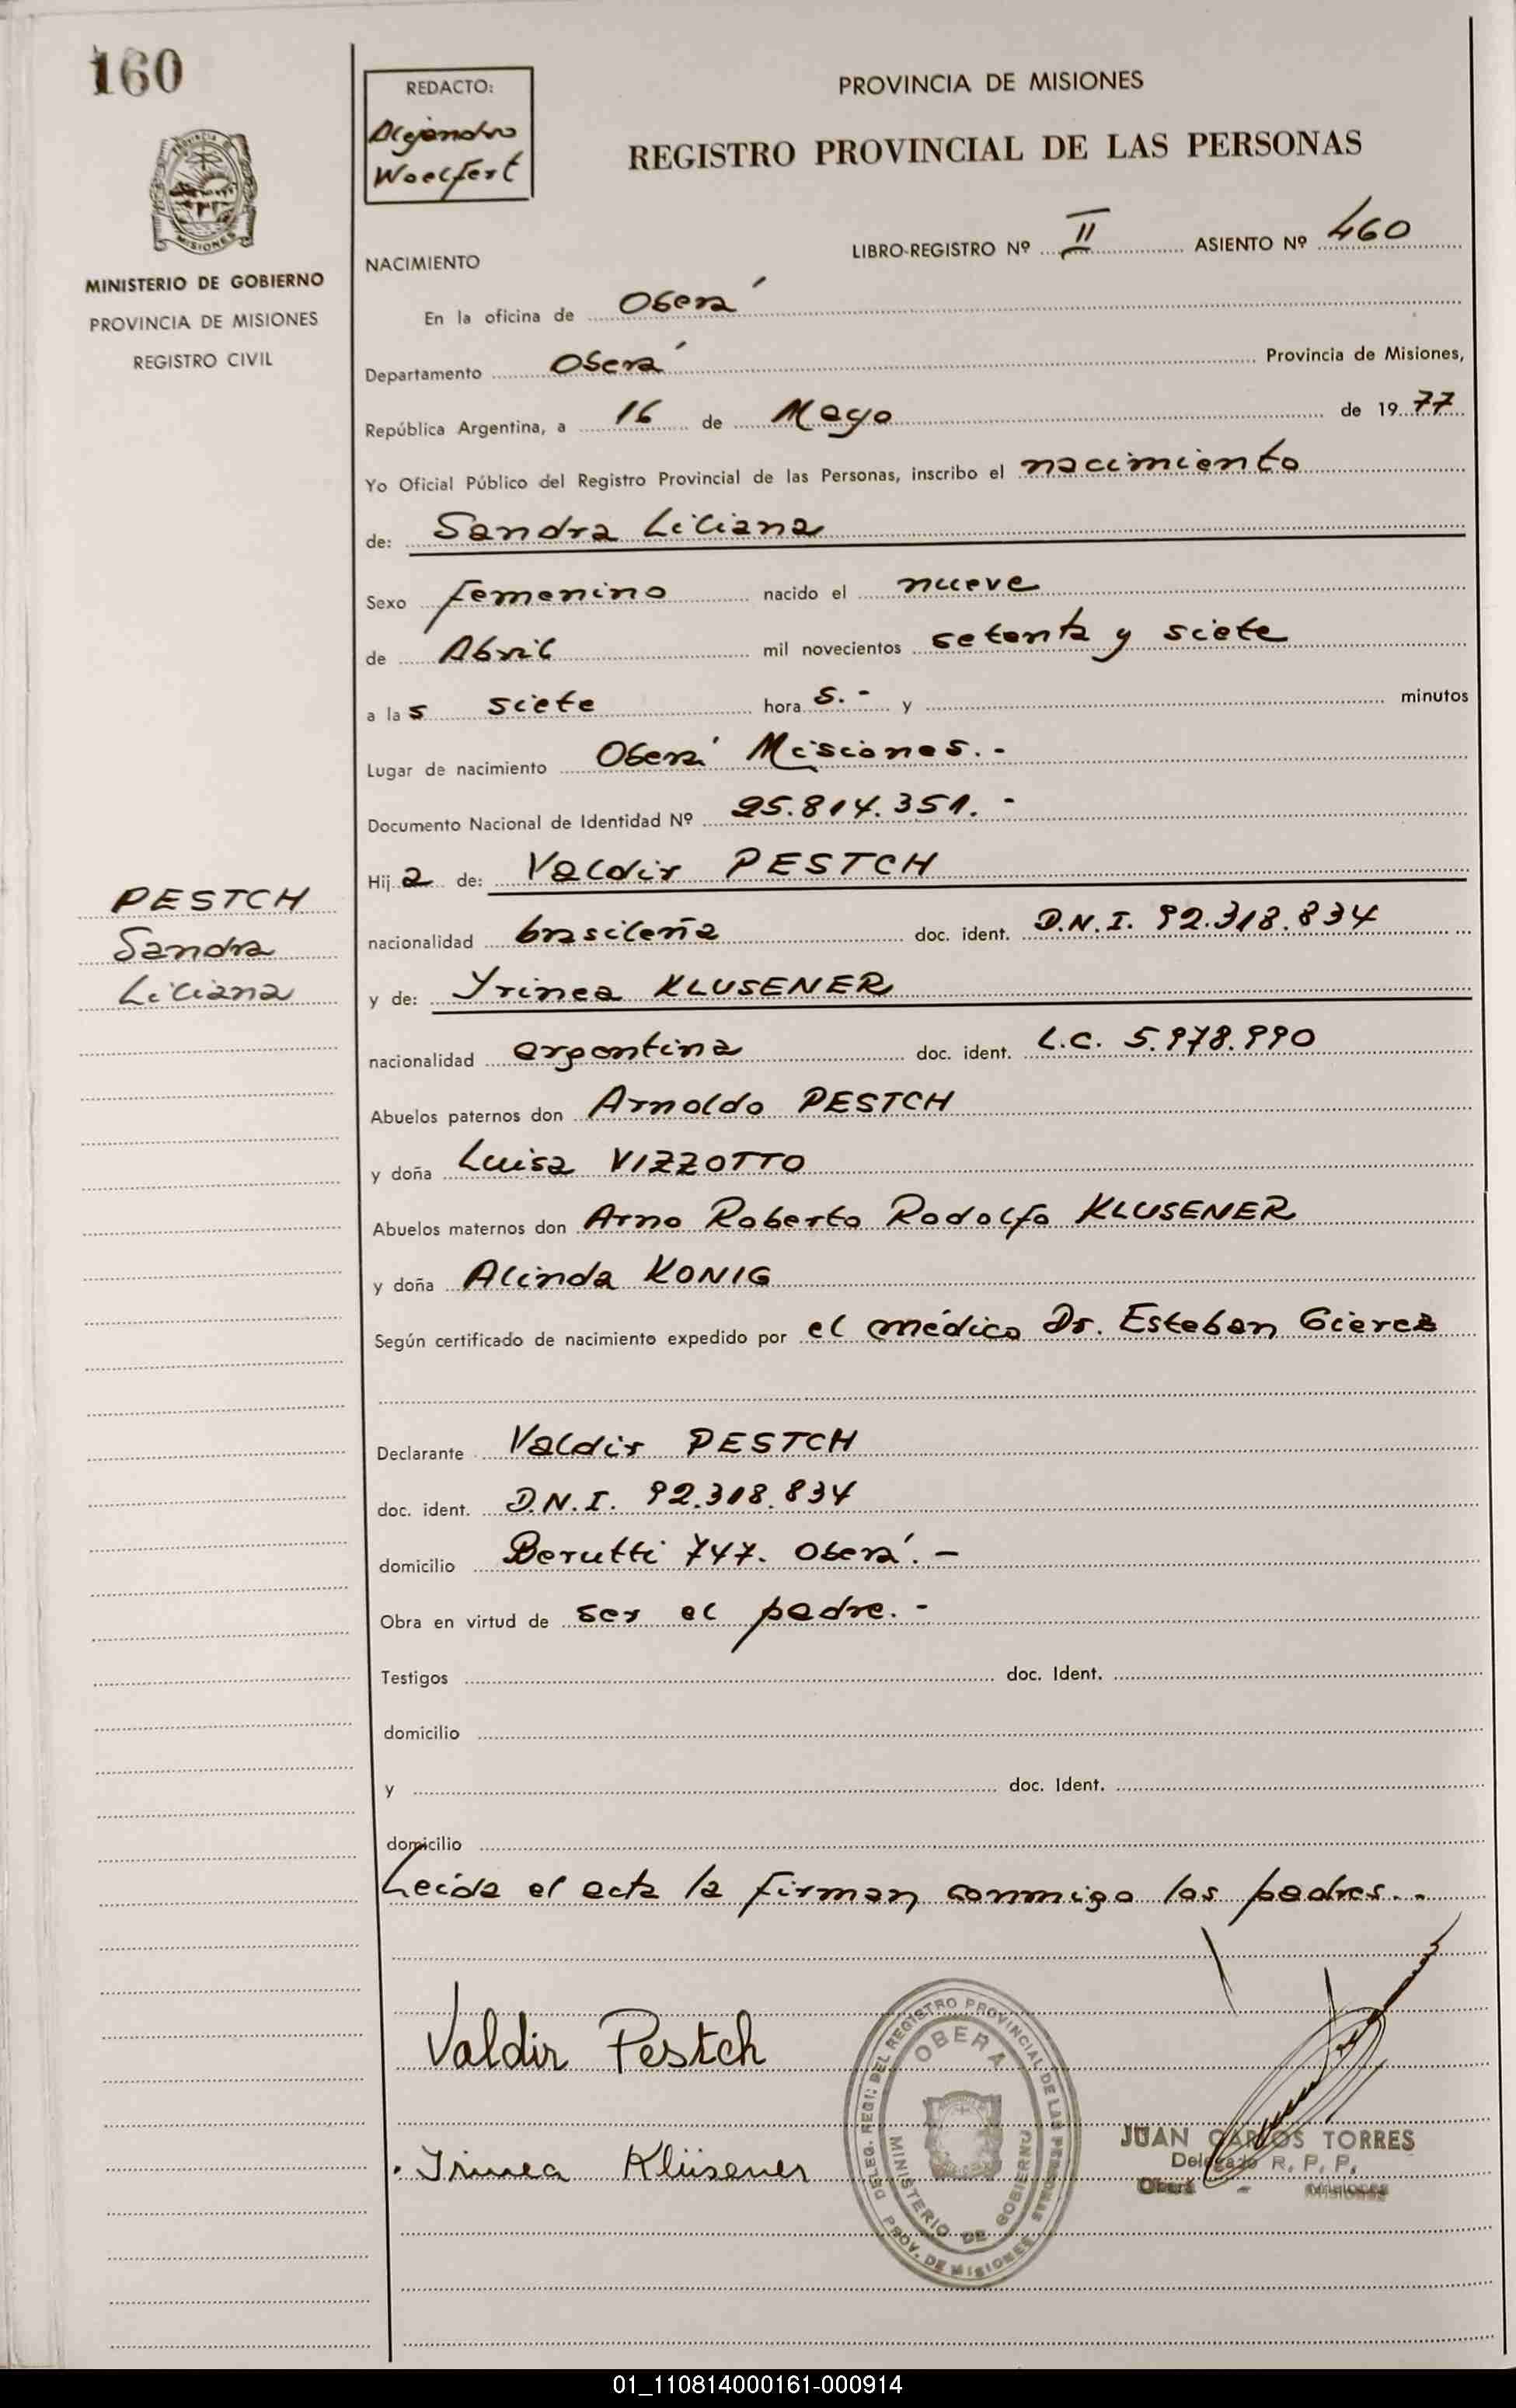 160
PROVINCIA
MISIONES
MINISTERIO DE GOBIERNO
PROVINCIA DE MISIONES
REGISTRO CIVIL
PESTCH
Sandra
Liliana
REDACTO:
Alejandro
Woelfert
PROVINCIA DE MISIONES
REGISTRO PROVINCIAL DE LAS PERSONAS
LIBRO-REGISTRO Nº II ASIENTO Nº 460
NACIMIENTO
En la oficina de Oberá
Departamento Oberá Provincia de Misiones,
República Argentina, a 16 de Mayo de 19 77
Yo Oficial Público del Registro Provincial de las Personas, inscribo el nacimiento
de: Sandra Liliana
Sexo femenino nacido el nueve
de Abril mil novecientos setenta y siete
a las siete hora s.- y minutos
Lugar de nacimiento Oberá Misiones.-
Documento Nacional de Identidad Nº 25.814.351.-
Hija de: Valdir PESTCH
nacionalidad brasileña doc. ident. D.N.I. 92.318.834
y de: Yrinea KLUSENER
nacionalidad argentina doc. ident. L.C. 5.978.990
Abuelos paternos don Arnoldo PESTCH
y doña Luisa VIZZOTTO
Abuelos maternos don Arno Roberto Rodolfo KLUSENER
y doña Alinda KONIG
Según certificado de nacimiento expedido por el médico Dr. Esteban
Declarante Valdir PESTCH
doc. ident. D.N.I. 92.318.834
domicilio Berutti 747. Oberá.-
Obra en virtud de ser el padre.-
Testigos doc. Ident.
domicilio
y doc. Ident.
domicilio
Leida el acta la firman conmigo los padres.-
Valdir Pestch
Irinea Klüsener
DELEG. REGI: DEL REGISTRO PROVINCIAL DE LAS PERSONAS
OBERA
MINISTERIO DE GOBIERNO
PROV. DE MISIONES
JUAN CARLOS TORRES
Delegado R. P. P.
Oberá - Misiones
01_110814000161-000914